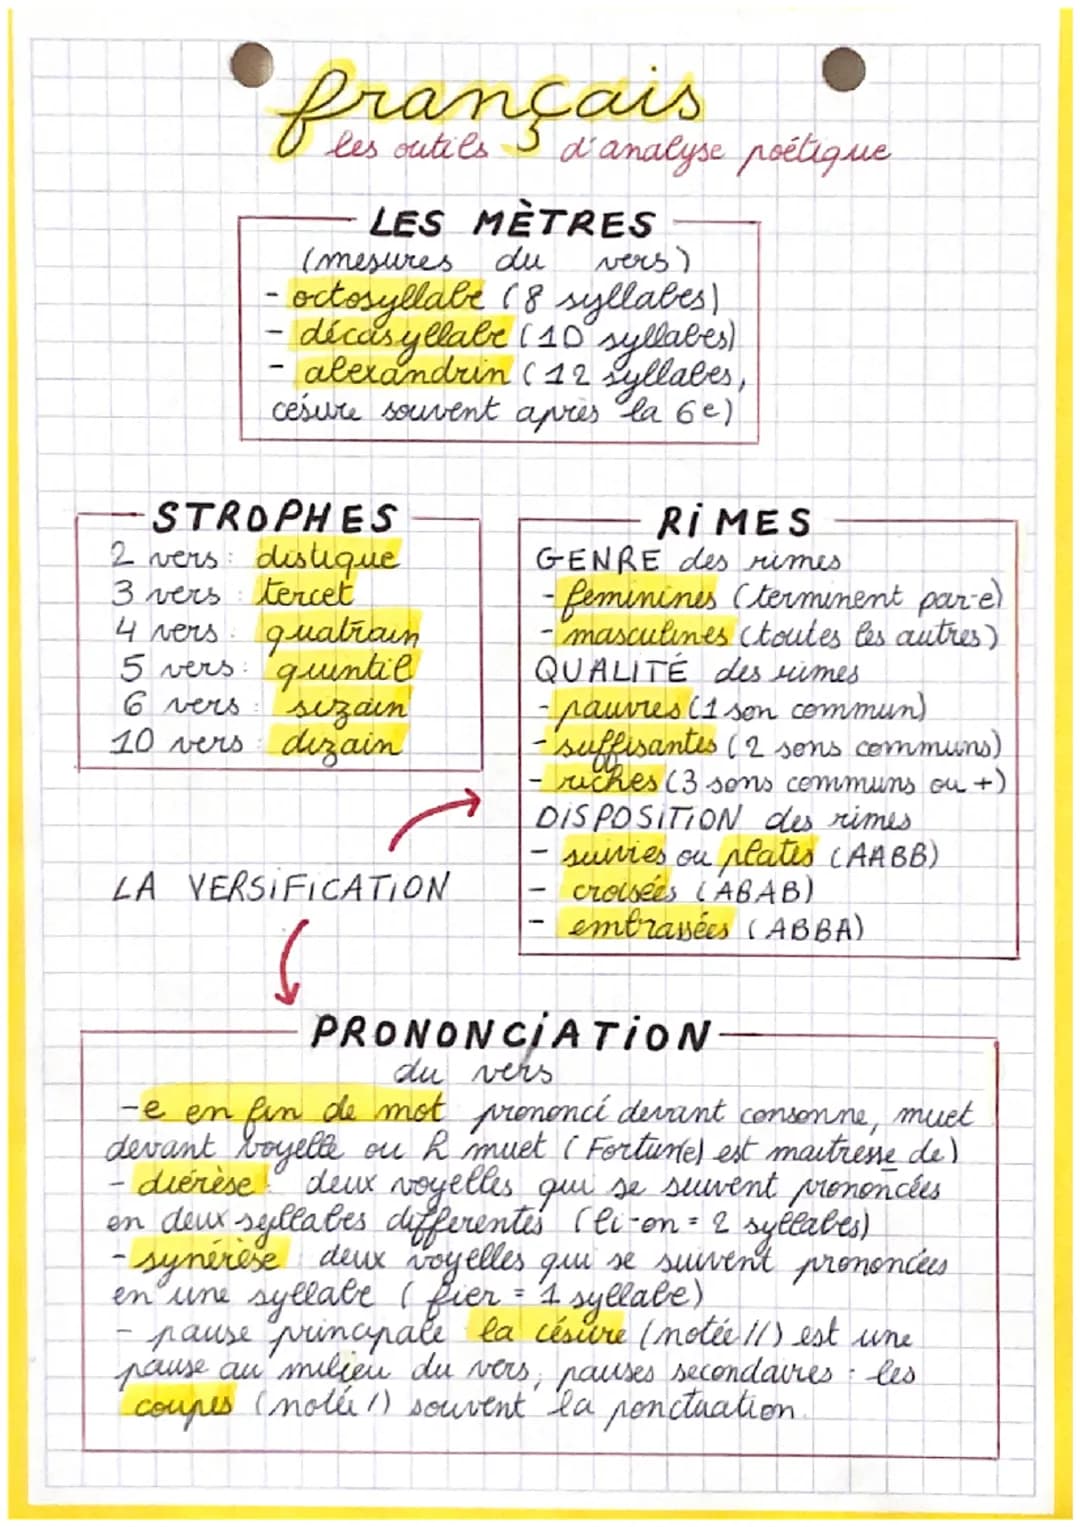 français
les outils d'analyse poétique
LES MÈTRES
(mesures du vers)
- octosyllabe (8 syllabes)
- décasyllabe (10 syllabes)
- alexandrin (12 syllabes,
césure souvent après la 6e)
STROPHES
2 vers : distique
3 vers : tercet
4 vers : quatrain
5 vers : quintil
6 vers : sizain
10 vers : dizain
RIMES
GENRE des rimes
- féminines (terminent par-e)
- masculines (toutes les autres)
QUALITÉ des rimes
- pauvres (1 son commun)
- suffisantes (2 sons communs)
- riches (3 sons communs ou +)
DISPOSITION des rimes
- suivies ou plates (AABB)
- croisées (ABAB)
- embrassées (ABBA)
LA VERSIFICATION
PRONONCIATION
du vers
- e en fin de mot prononcé devant consonne, muet
devant voyelle ou h muet (Fortun(e) est maitresse de)
- diérèse : deux voyelles qui se suivent prononcées
en deux syllabes différentes (li-on = 2 syllabes)
- synérèse : deux voyelles qui se suivent prononcées
en une syllabe (fier = 1 syllabe)
- pause principale la césure (notée //) est une
pause au milieu du vers, pauses secondaires : les
coupes (notée /) souvent la ponctuation.